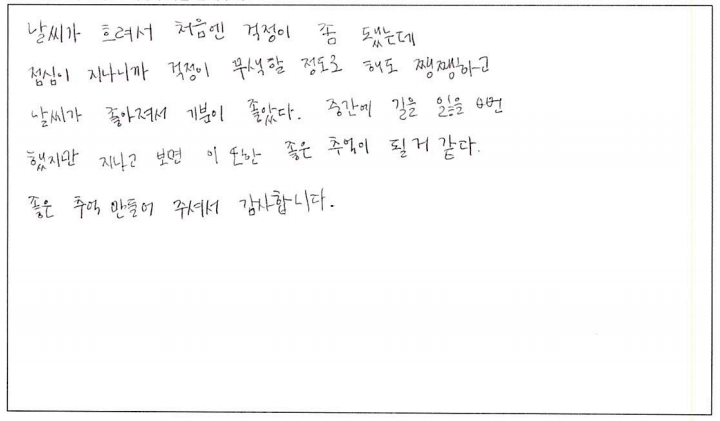 날씨가 흐려서 처음엔 걱정이 좀 됐는데
점심이 지나니까 걱정이 무색할 정도로 해도 쨍쨍하고
날씨가 좋아져서 기분이 좋았다. 중간에 길을 잃을 뻔
했지만 지나고 보면 이 또한 좋은 추억이 될 거 같다.
좋은 추억 만들어 주셔서 감사합니다.